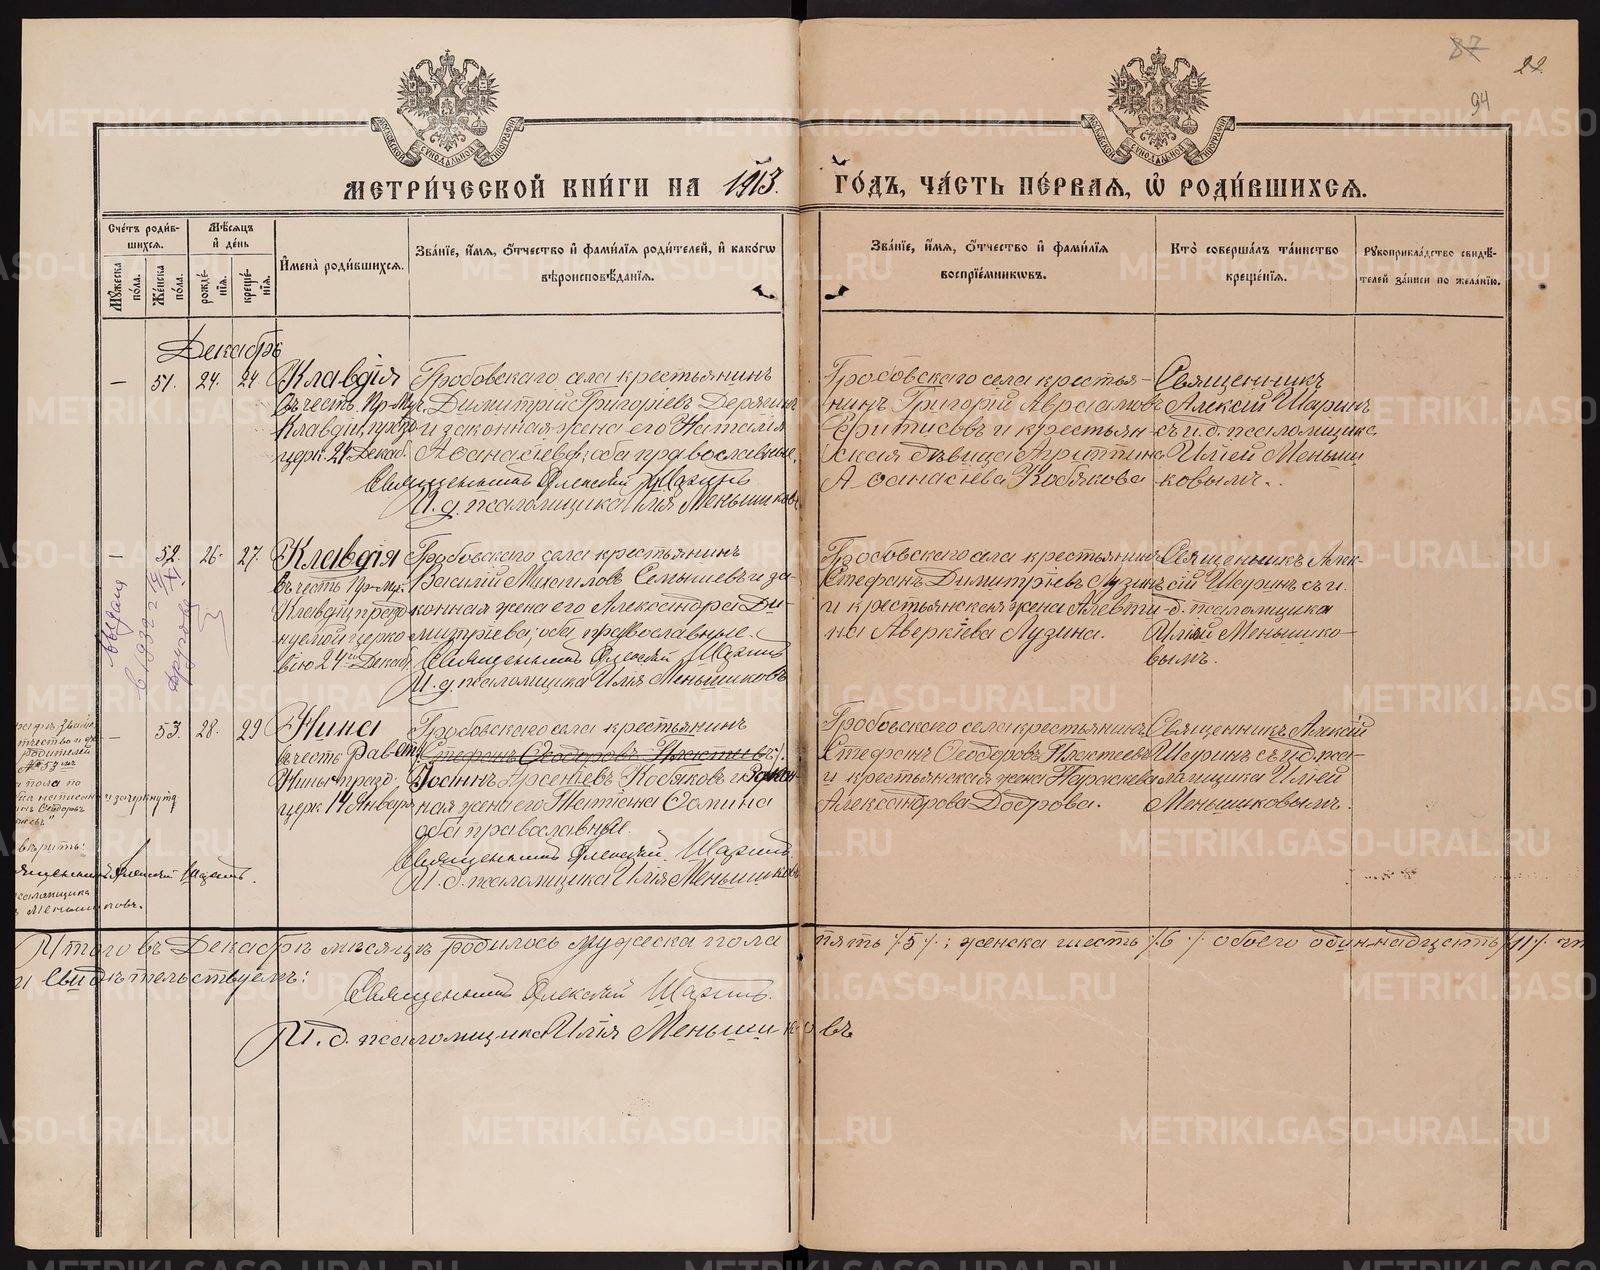 87
22.
94
МОСКОВСКОЙ СѴНОДАЛЬНОЙ ТИПОГРАФІИ
МОСКОВСКОЙ СѴНОДАЛЬНОЙ ТИПОГРАФІИ
МЕТРИ́ЧЕСКОЙ КНИ́ГИ НА 1913. ГО́ДЪ, ЧА́СТЬ ПЕ́РВАЯ, Ѽ РОДИ́ВШИХСЯ.
Сче́тъ роди́вшихся.
Мꙋ́жеска по́ла.
Же́нска по́ла.
Мѣ́сяцъ и де́нь
рожде́нїя.
креще́нїя.
И́мена̀ роди́вшихся.
Зва́нїе, и́мя, ѻ́тчество и фами́лїя роди́телей, и како́гѡ вѣроисповѣ́данїя.
Зва́нїе, и́мя, ѻ́тчество и фами́лїя воспрїе́мникѡвъ.
Кто̀ соверша́лъ та́инство креще́нїя.
Рꙋкоприкла́дство свидѣ́телей за́писи по жела́нїю.
Декабрь
— 51. 24. 24 Клавдія
въ честь Пр-Муч.
Клавдіи, праздн.
церк. 24 Декаб.
Гробовскаго села крестьянинъ
Димитрій Григоріевъ Дерягинъ
и законная жена его Наталія
Аѳанасіева; оба православные.
Священникъ Алексій Шаринъ
И. д. псаломщика Илія Меньшиковъ
Гробовскаго села крестья-
нинъ Григорій Авраамовъ
и крестьян-
ская дѣвица Агриппина
Аѳанасіева Кобякова
Священникъ
Алексій Шаринъ
съ и. д. псаломщика
Иліей Меньши
ковымъ.
— 52. 26. 27. Клавдія
въ честь Пр-му.
Клавдіи праздн
куемой церко
вію 24го Декаб.
Гробовскаго села крестьянинъ
Василій Михаиловъ Семышевъ и за-
конная жена его Александра Ди-
митріева; оба православные.
Священникъ Алексій Шаринъ
И. д. псаломщика Илія Меньшиковъ
Гробовскаго села крестьянинъ
Стефанъ Димитріевъ Лузинъ
и крестьянская жена Алевти
на Аверкіева Лузина.
Священникъ Алек-
сій Шаринъ съ и.
д. псаломщика
Иліей Меньшико-
вымъ.
— 53. 28. 29 Нина
въ честь Равноап.
Нины празд.
церк. 14 Января
Гробовскаго села крестьянинъ
Стефанъ Ѳеодоровъ Ноктеевъ
Іоаннъ Арсеніевъ Кобяковъ и закон
ная жена его Татіана Ѳомина
оба православные.
Священникъ Алексій Шаринъ
И. д. псаломщика Илія Меньшиковъ
Гробовскаго села крестьянинъ
Стефанъ Ѳеодоровъ Ноктеевъ
и крестьянская жена Параскева
Александрова Доброва.
Священникъ Алексій
Шаринъ съ и. д. пса-
ломщика Иліей
Меньшиковымъ.
Итого въ Декабрѣ мѣсяцѣ родилось мужеска пола пять /5/; женска шесть /6/ обоего одиннадцать /11/ чт
и свидѣтельствуемъ:
Священникъ Алексій Шаринъ.
И. д. псаломщика Илія Меньшиковъ
METRIKI.GASO-URAL.RU